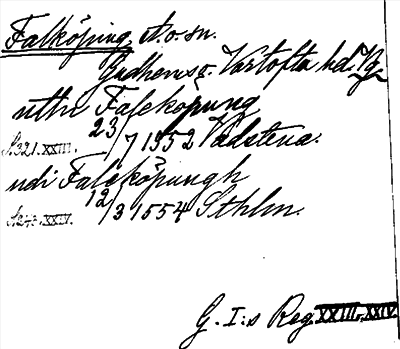 Falköping, st. o. sn.
Gudhems o. Vartofta hd. Vg.
uthi Faleköpung
S. 321. XXIII. 23/7 1552 Vadstena.
udi Faleköpungh
S. 243. XXIV. 12/3 1554 Sthlm.
G. I:s Reg. XXIII, XXIV